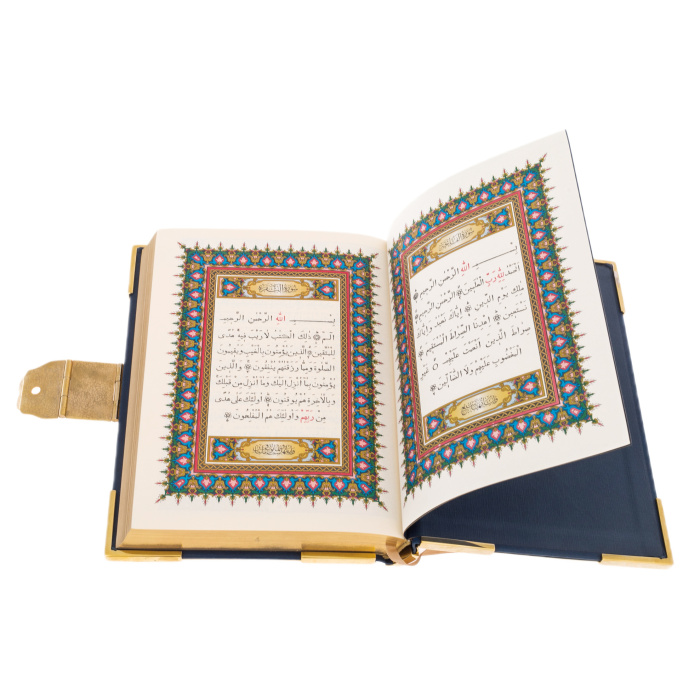 سورة الفاتحة
بسم الله الرحمن الرحيم
الحمد لله رب العلمين الرحمن الرحيم
ملك يوم الدين إياك نعبد وإياك
نستعين اهدنا الصراط المستقيم
صراط الذين أنعمت عليهم غير
المغضوب عليهم ولا الضالين
سورة البقرة
بسم الله الرحمن الرحيم
الم ذلك الكتب لا ريب فيه هدى
للمتقين الذين يؤمنون بالغيب ويقيمون
الصلوة ومما رزقنهم ينفقون والذين
يؤمنون بما أنزل إليك وما أنزل من قبلك
وبالآخرة هم يوقنون أولئك على هدى
من ربهم وأولئك هم المفلحون